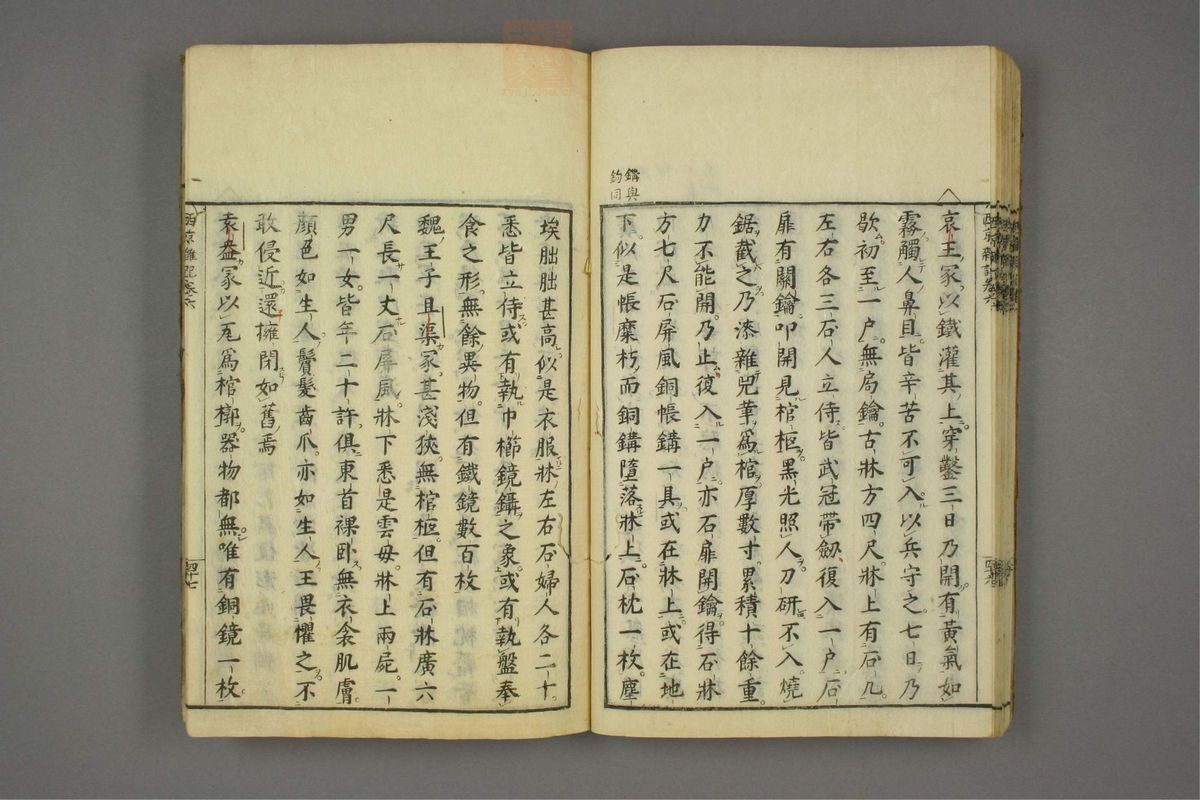 鐍與
鈎同
哀王冢以鐵灌其上穿鑿三日乃開有黃氣如
霧觸人鼻目皆辛苦不可入以兵守之七日乃
歇初至一戶無扃鑰古牀方四尺牀上有石几
左右各三石人立侍皆武冠帶劒復入一戶石
扉有關鑰叩開見棺柩黑光照人刀斫不入燒
鋸截之乃漆雜兕革爲棺厚數寸累積十餘重
力不能開乃止復入一戶亦石扉開鑰得石牀
方七尺石屏風銅帳鐍一具或在牀上或在地
下似是帳糜朽而銅鐍墮落牀上石枕一枚塵
埃朏朏甚高似是衣服牀左右石婦人各二十
悉皆立侍或有執巾櫛鏡鑷之象或有執盤奉
食之形無餘異物但有鐵鏡數百枚
魏王子且渠冢甚淺狹無棺柩但有石牀廣六
尺長一丈石屏風牀下悉是雲母牀上兩屍一
男一女皆年二十許俱東首裸臥無衣衾肌膚
顏色如生人鬢髮齒爪亦如生人王畏懼之不
敢侵近還擁閉如舊焉
袁盎冢以瓦爲棺槨器物都無唯有銅鏡一枚
西京雜記卷六
四十七